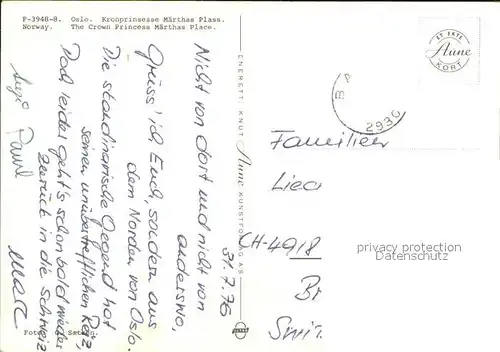 P-3948-8. Oslo. Kronprinsesse Märthas Plass.
Norway. The Crown Princess Märthas Place.
31.7.76
Nicht von dort und nicht von
anderswo,
Grüss' ich Euch, sondern aus
dem Norden von Oslo.
Die skandinavische Gegend hat
seinen unübertrefflichen Reiz,
Doch leider geht's schon bald wieder
zurück in die Schweiz
Paul
Marc
Foto: Satzen.
ENERETT: KNUT Aune KUNSTFORLAG A/S
ET EKTE
Aune
KORT
2930
Familien
CH-4918
privacy protection
watermark